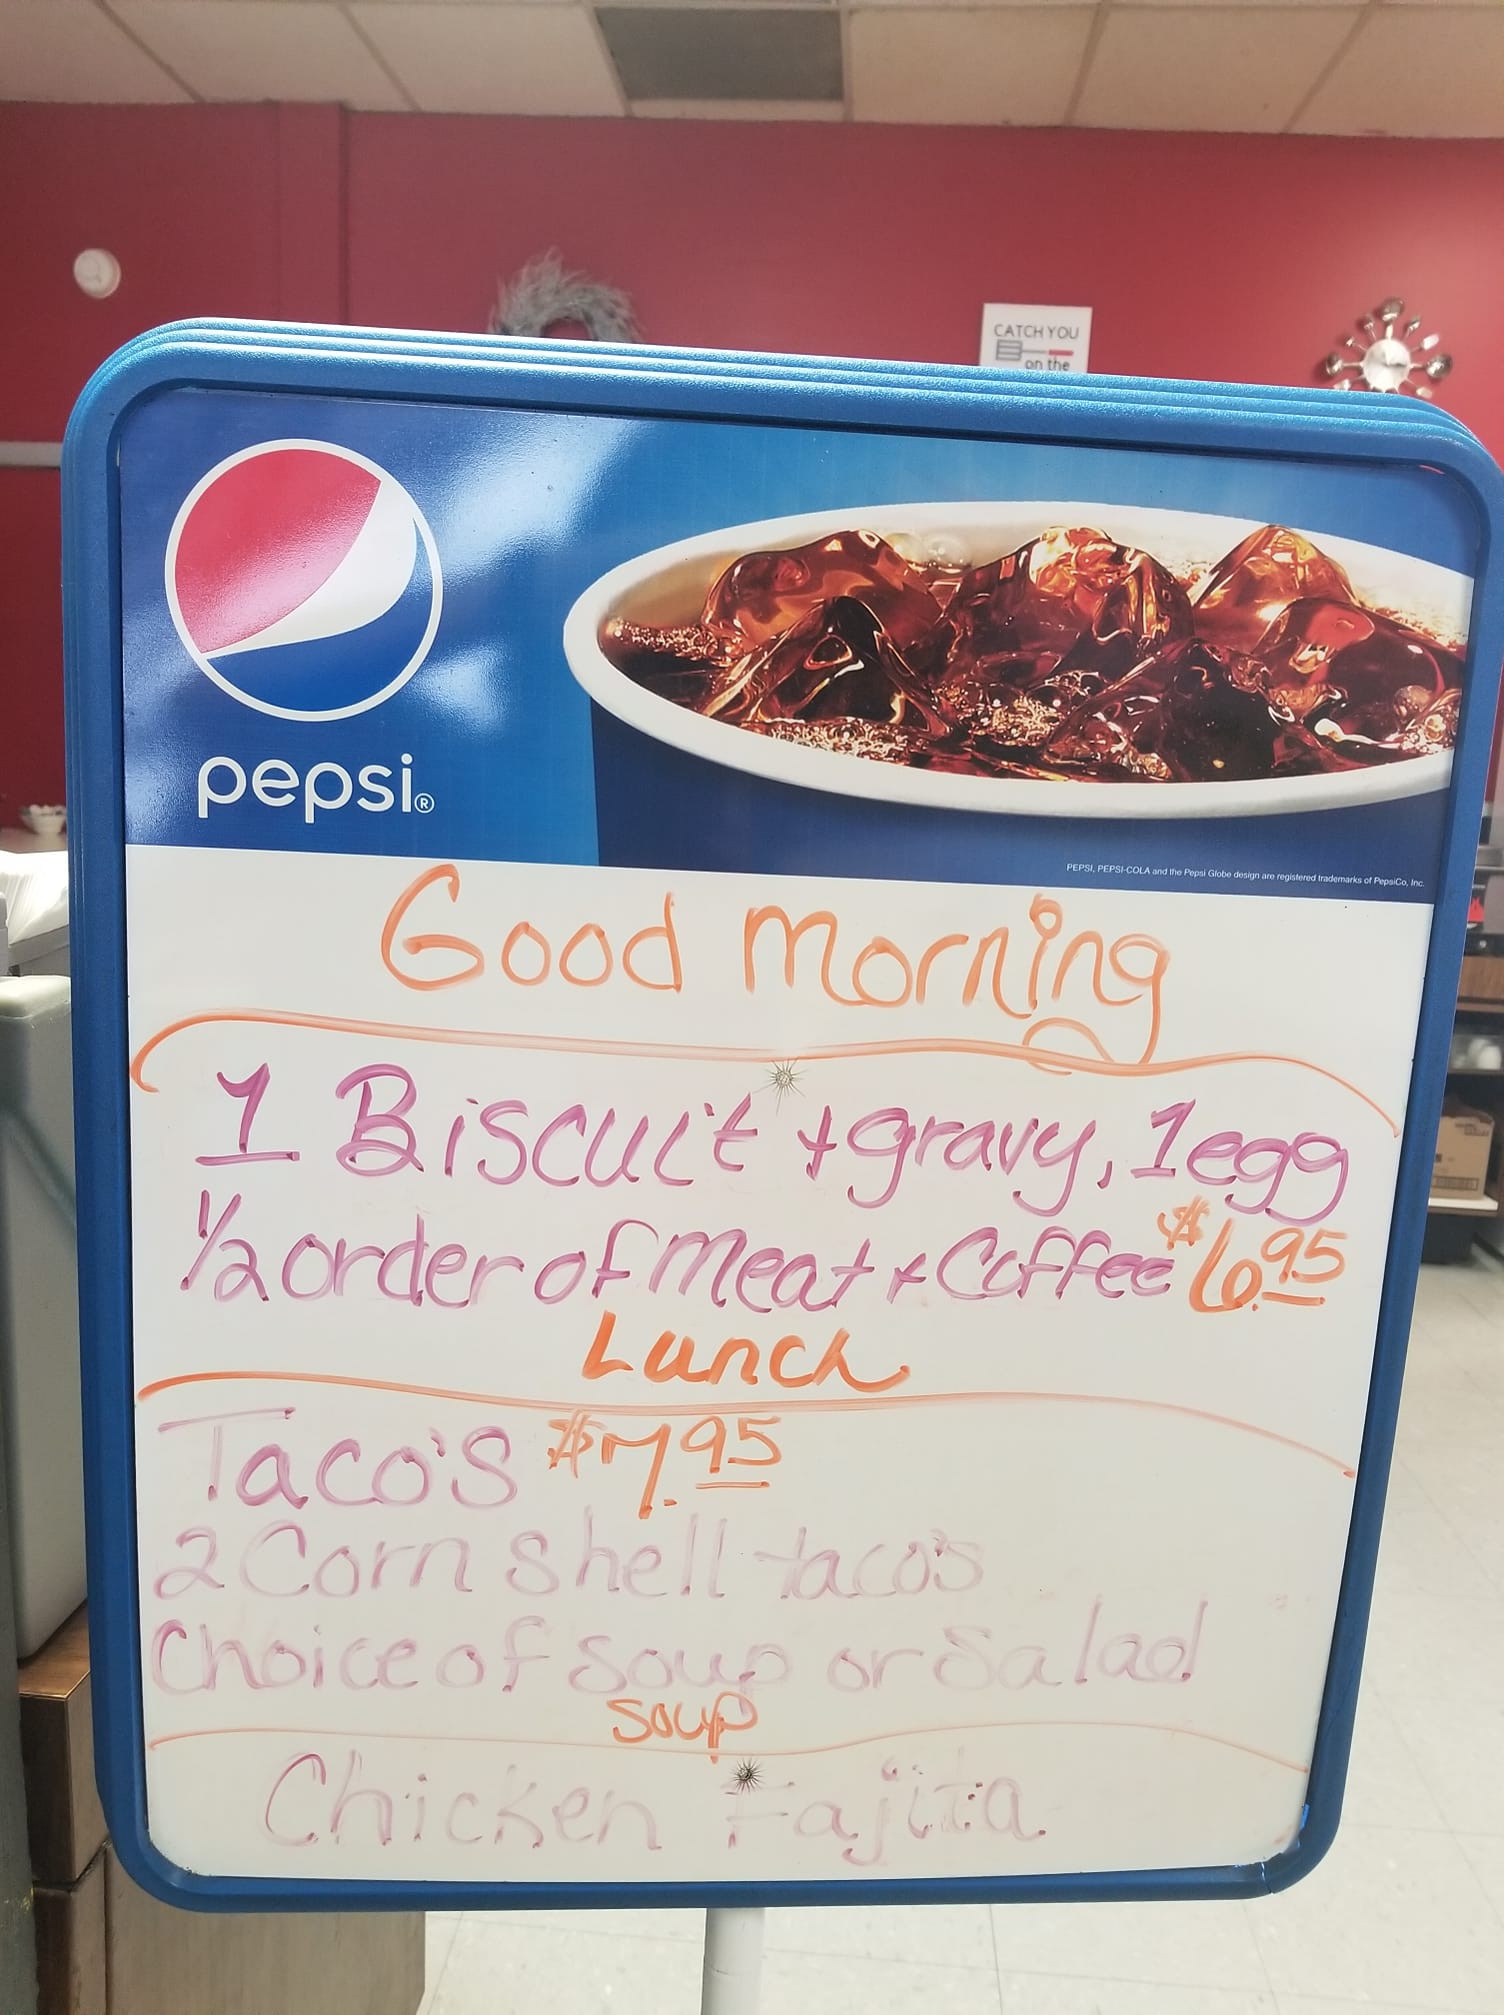 CATCH YOU
on the
pepsi®
PEPSI, PEPSI-COLA and the Pepsi Globe design are registered trademarks of PepsiCo, Inc.
Good Morning
1 Biscuit + gravy, 1 egg
1/2 order of Meat + Coffee $6.95
Lunch
Taco's $7.95
2 Corn shell taco's
Choice of soup or Salad
Soup
Chicken Fajita